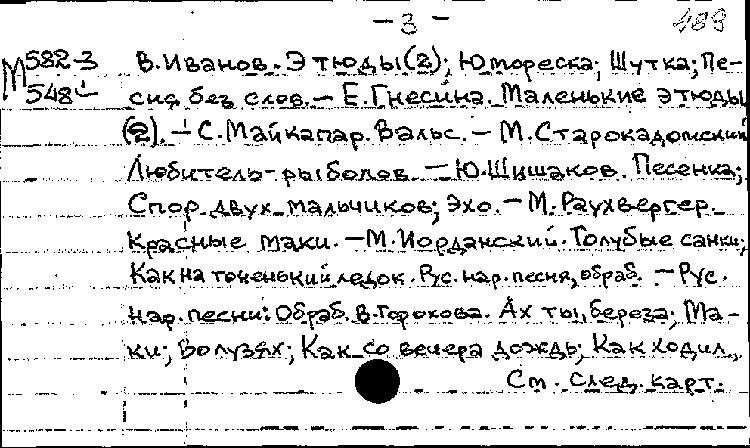 - 3 - 489
М 582-3 В. Иванов. Этюды (2); Юмореска; Шутка; Пе-
548 сня без слов. — Е. Гнесина. Маленькие этюды
(2). — С. Майкапар. Вальс. — М. Старокадомский
Любитель-рыболов. — Ю. Шишаков. Песенка;
Спор двух мальчиков; Эхо. — М. Раухвергер.
Красные маки. — М. Иорданский. Голубые санки;
Как на тоненький ледок. Рус. нар. песня, обраб. — Рус.
нар. песни: Обраб. В. Горохова. Ах ты, береза; Ма-
ки; Во лузях; Как со вечера дождь; Как ходил..
См. след. карт.